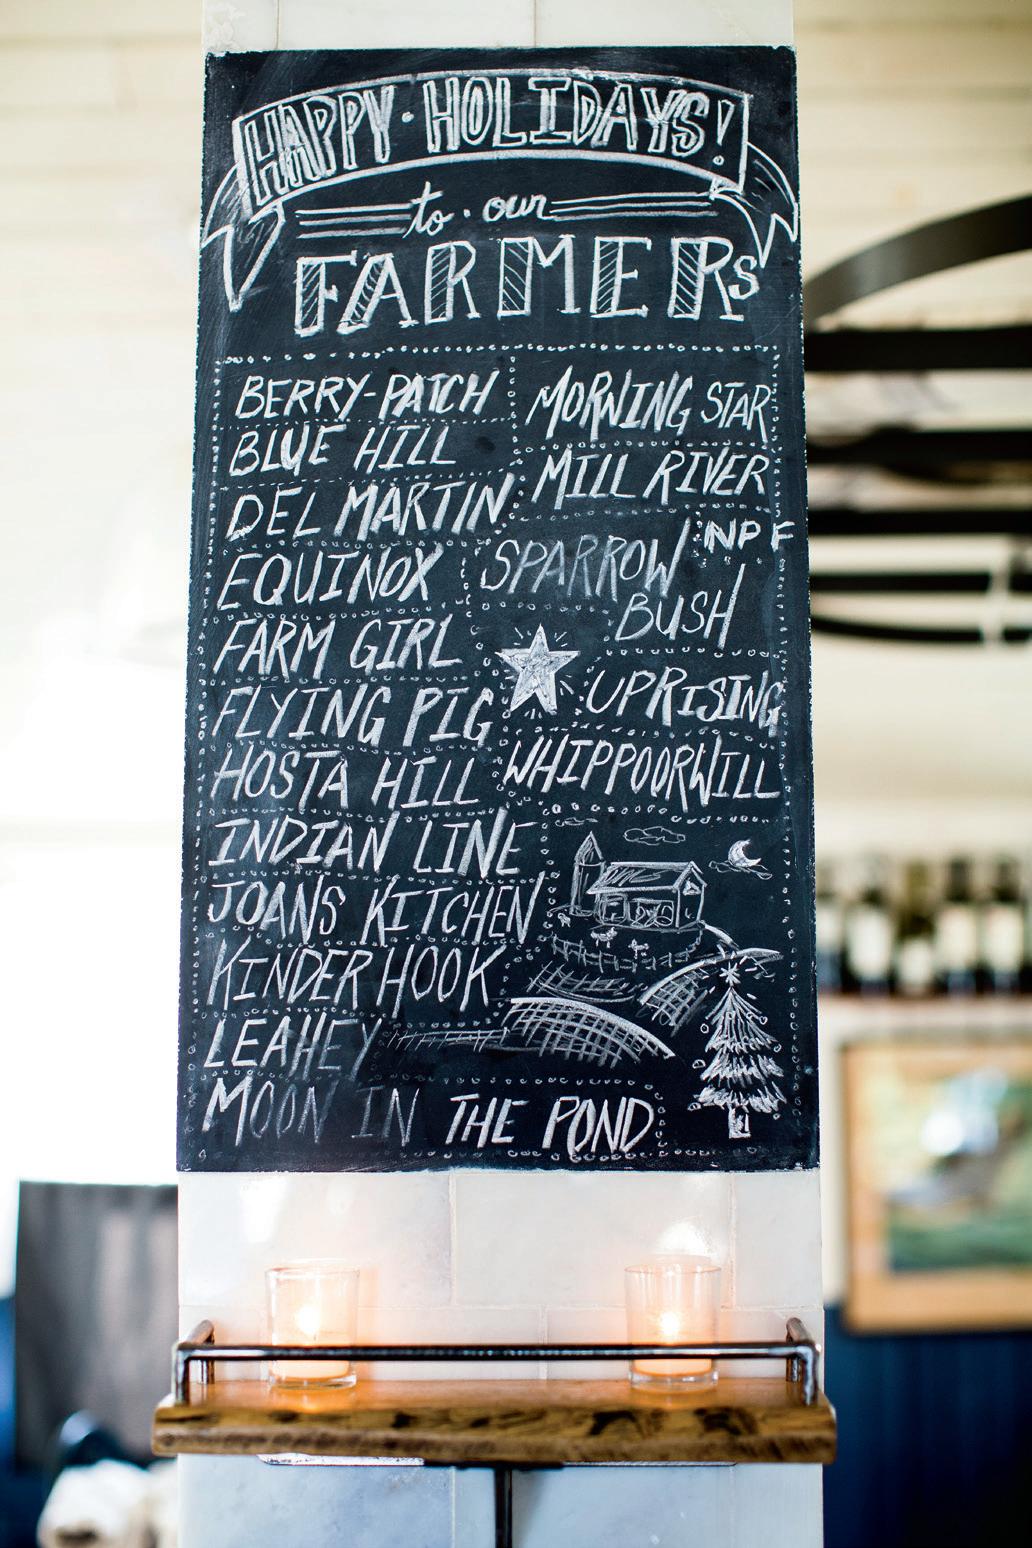 HAPPY · HOLIDAYS!
to · our
FARMERS
BERRY-PATCH
BLUE HILL
DEL MARTIN
EQUINOX
FARM GIRL
FLYING PIG
HOSTA HILL
INDIAN LINE
JOANS KITCHEN
KINDERHOOK
LEAHEY
MOON IN THE POND
MORNING STAR
MILL RIVER
NPF
SPARROW
BUSH
UPRISING
WHIPPOORWILL